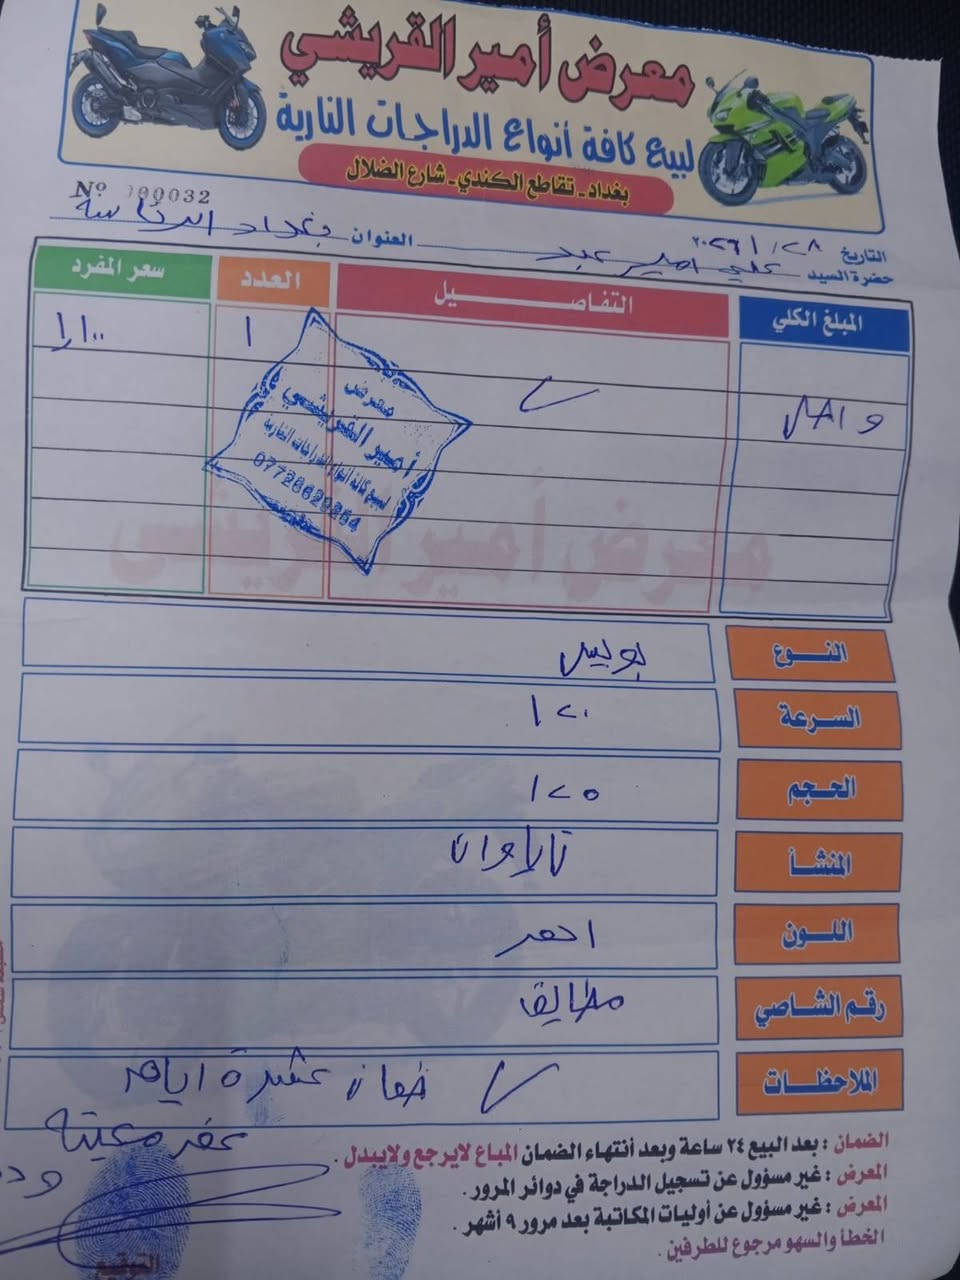 معرض أمير القريشي
لبيع كافة أنواع الدراجات النارية
بغداد - تقاطع الكندي - شارع الضلال
Nº 000032
التاريخ ٢٠٢٦/١/٢٨
حضرة السيد علي امير عبد العنوان بغداد
المبلغ الكلي التفاصيل العدد سعر المفرد
١ ١١٠٠
واصل
معرض
أمير القريشي
لبيع كافة أنواع الدراجات النارية
07728629264
معرض أمير القريشي
النوع بوبيس
السرعة ١٢٠
الحجم ١٢٥
المنشأ تايوان
اللون احمر
رقم الشاصي مطابق
الملاحظات ضمان عشرة ايام
الضمان : بعد البيع ٢٤ ساعة وبعد أنتهاء الضمان المباع لايرجع ولايبدل .
المعرض : غير مسؤول عن تسجيل الدراجة في دوائر المرور .
المعرض : غير مسؤول عن أوليات المكاتبة بعد مرور ٩ أشهر .
الخطأ والسهو مرجوع للطرفين .
التوقيع